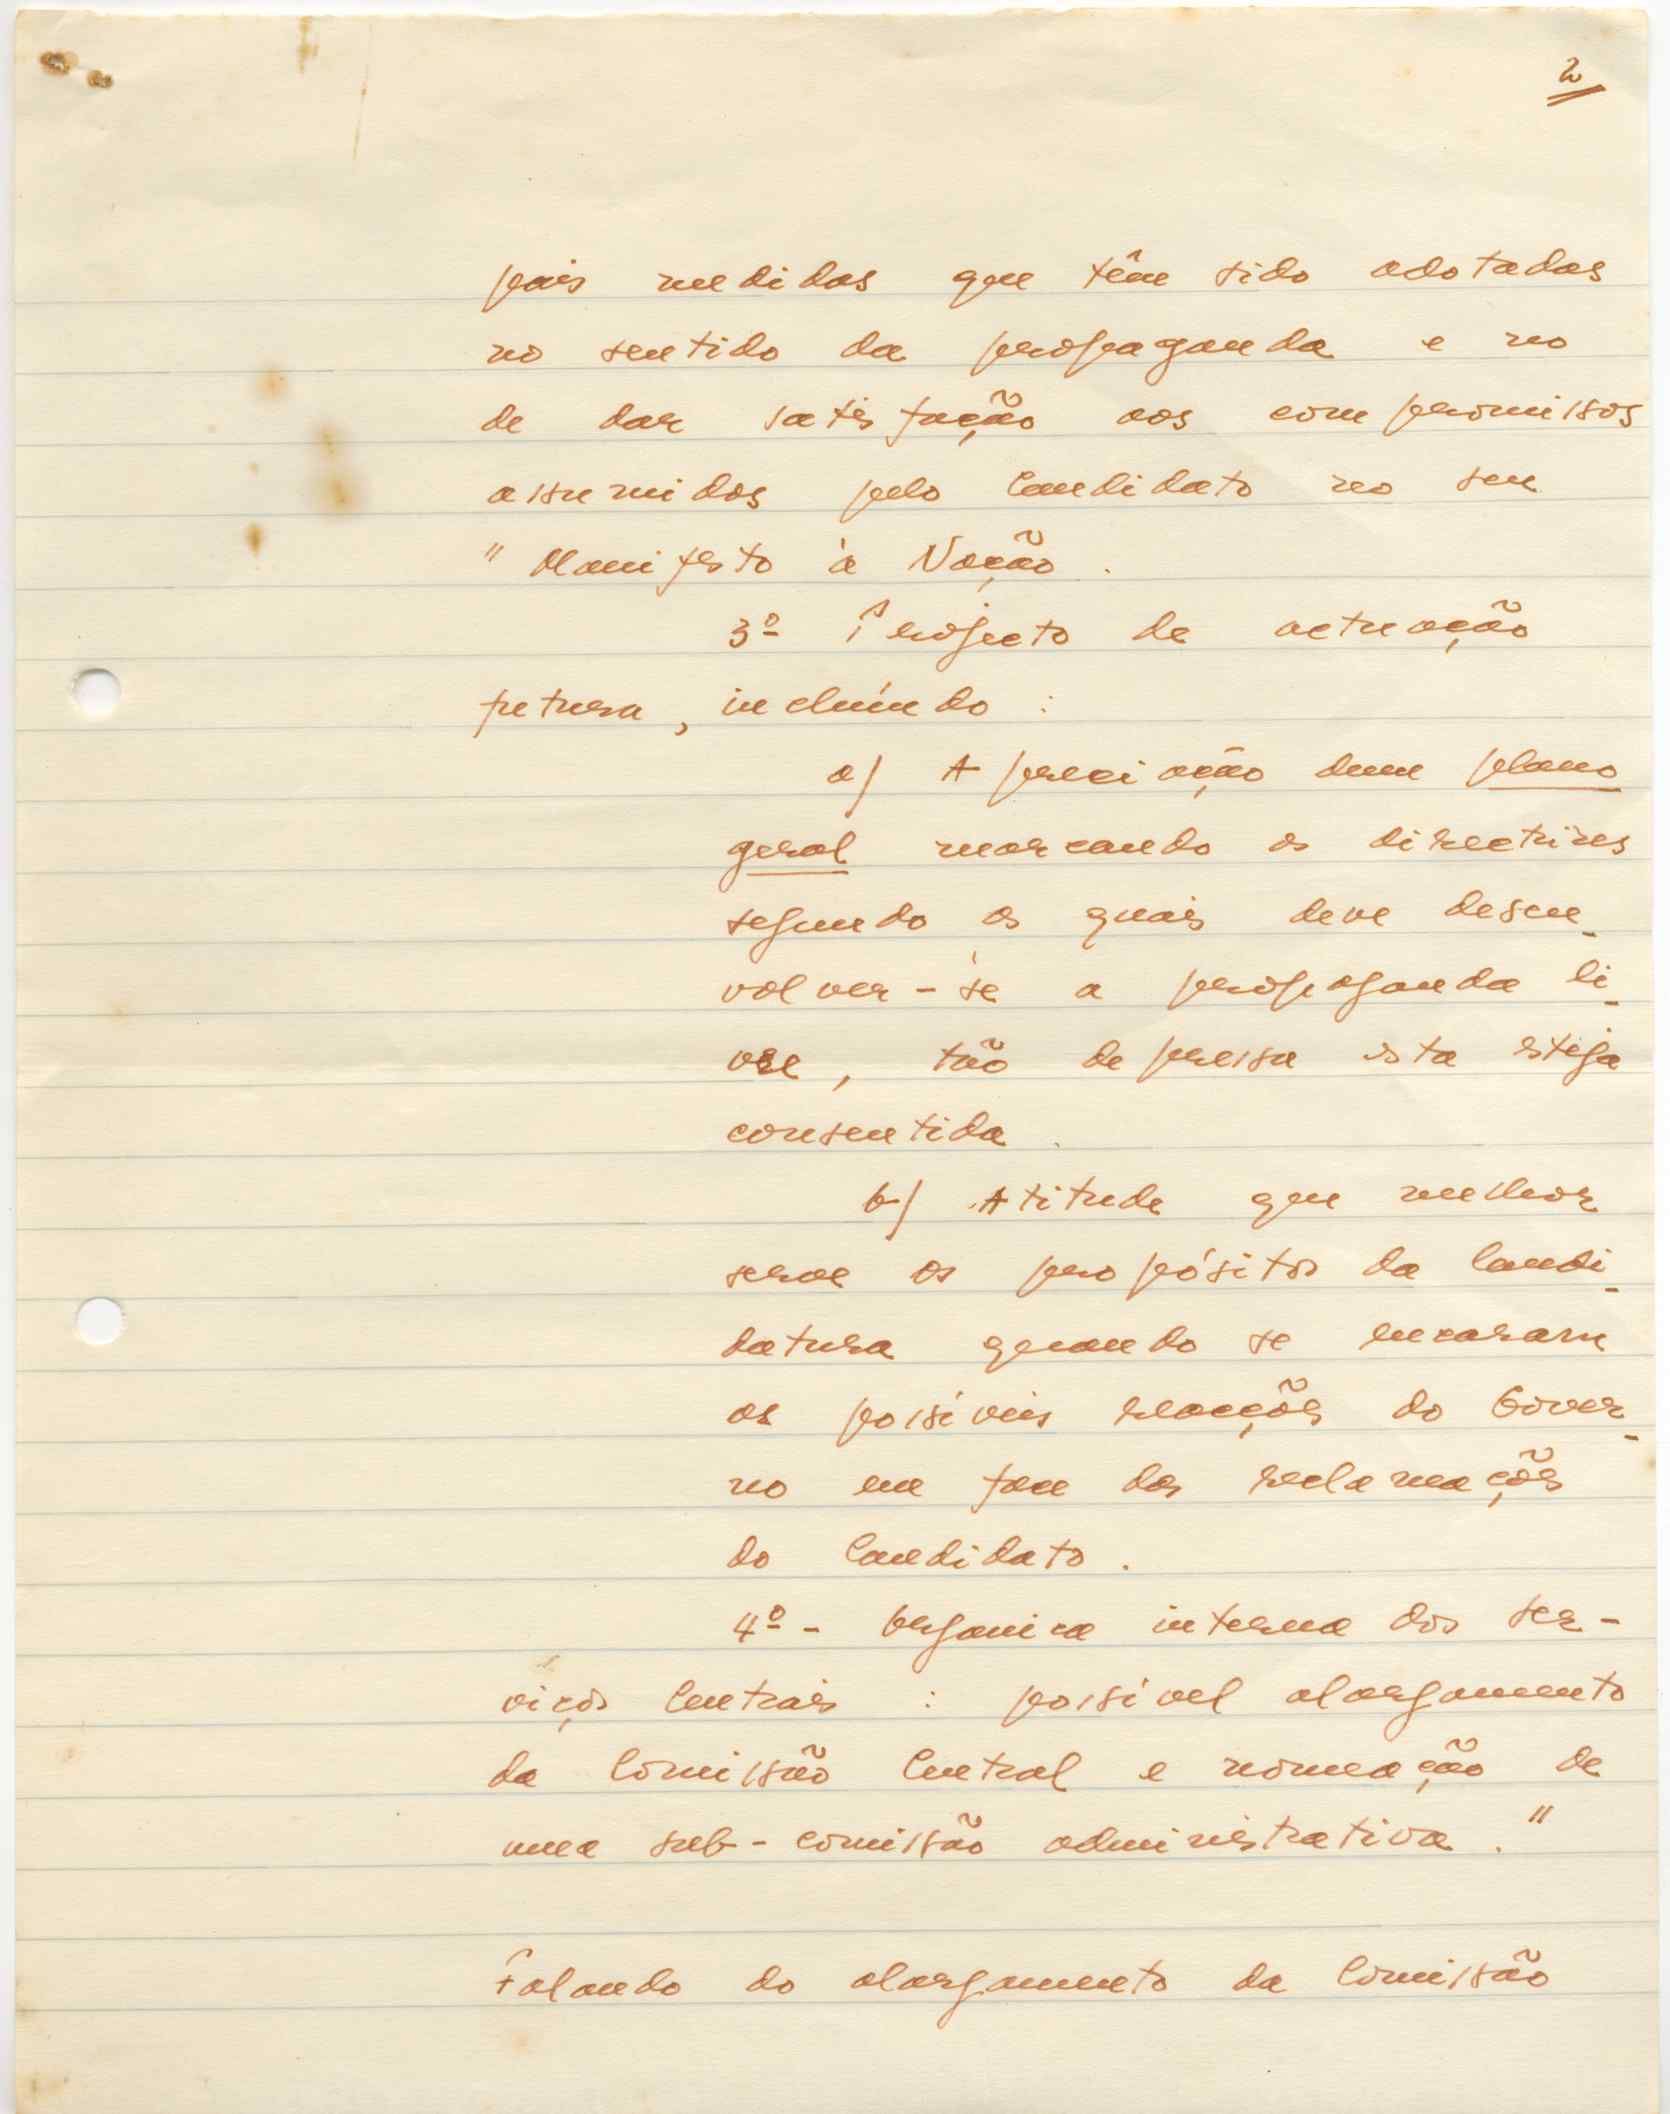 2
pais medidas que têm sido adotadas
no sentido da propaganda e no
de dar satisfação aos compromissos
assumidos pelo Candidato no seu
"Manifesto à Nação.
3º Projecto de actuação
futura, incluíndo:
a) Apreciação dum plano
geral marcando as directrizes
segundo as quais deve desen-
volver-se a propaganda li-
vre, tão depressa esta esteja
consentida.
b) Atitude que melhor
serve os propósitos da Candi-
datura quando se encararam
as possíveis reacções do Gover-
no em face das reclamações
do Candidato.
4º - Organica interna dos ser-
viços Centrais: possível alargamento
da Comissão Central e nomeação de
uma sub-comissão administrativa."
Falando do alargamento da Comissão